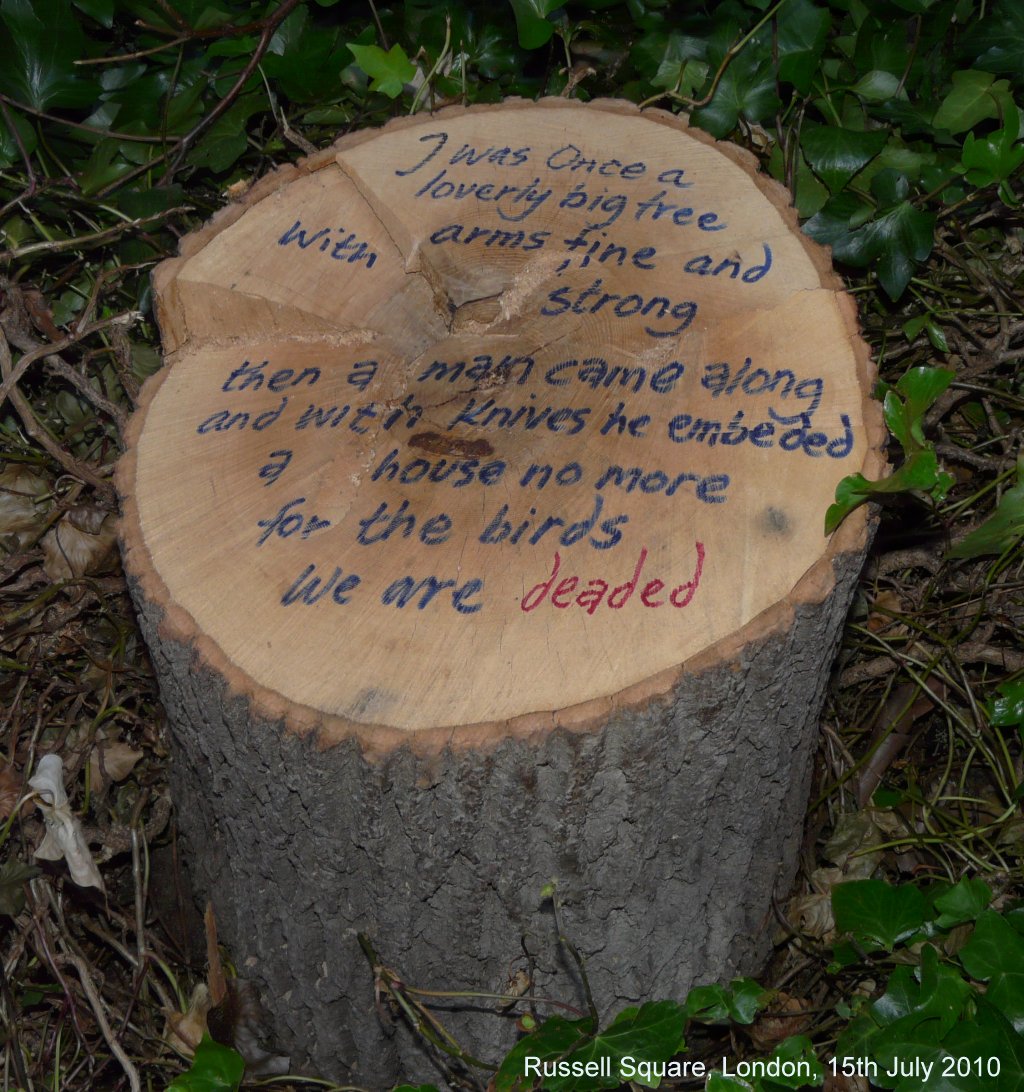 I was Once a
loverly big tree
With arms fine and
strong
then a man came along
and with Knives he embeded
a house no more
for the birds
We are deaded
Russell Square, London, 15th July 2010